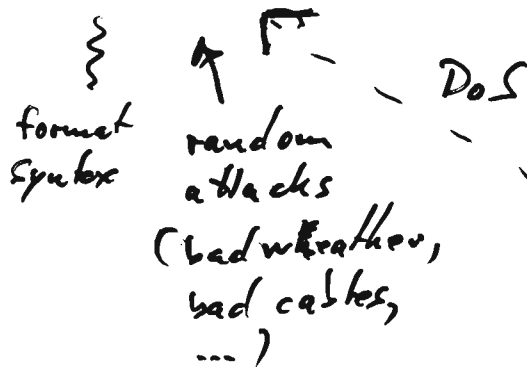 DoS
format
syntax
random
attacks
(bad wheather,
bad cables,
...)